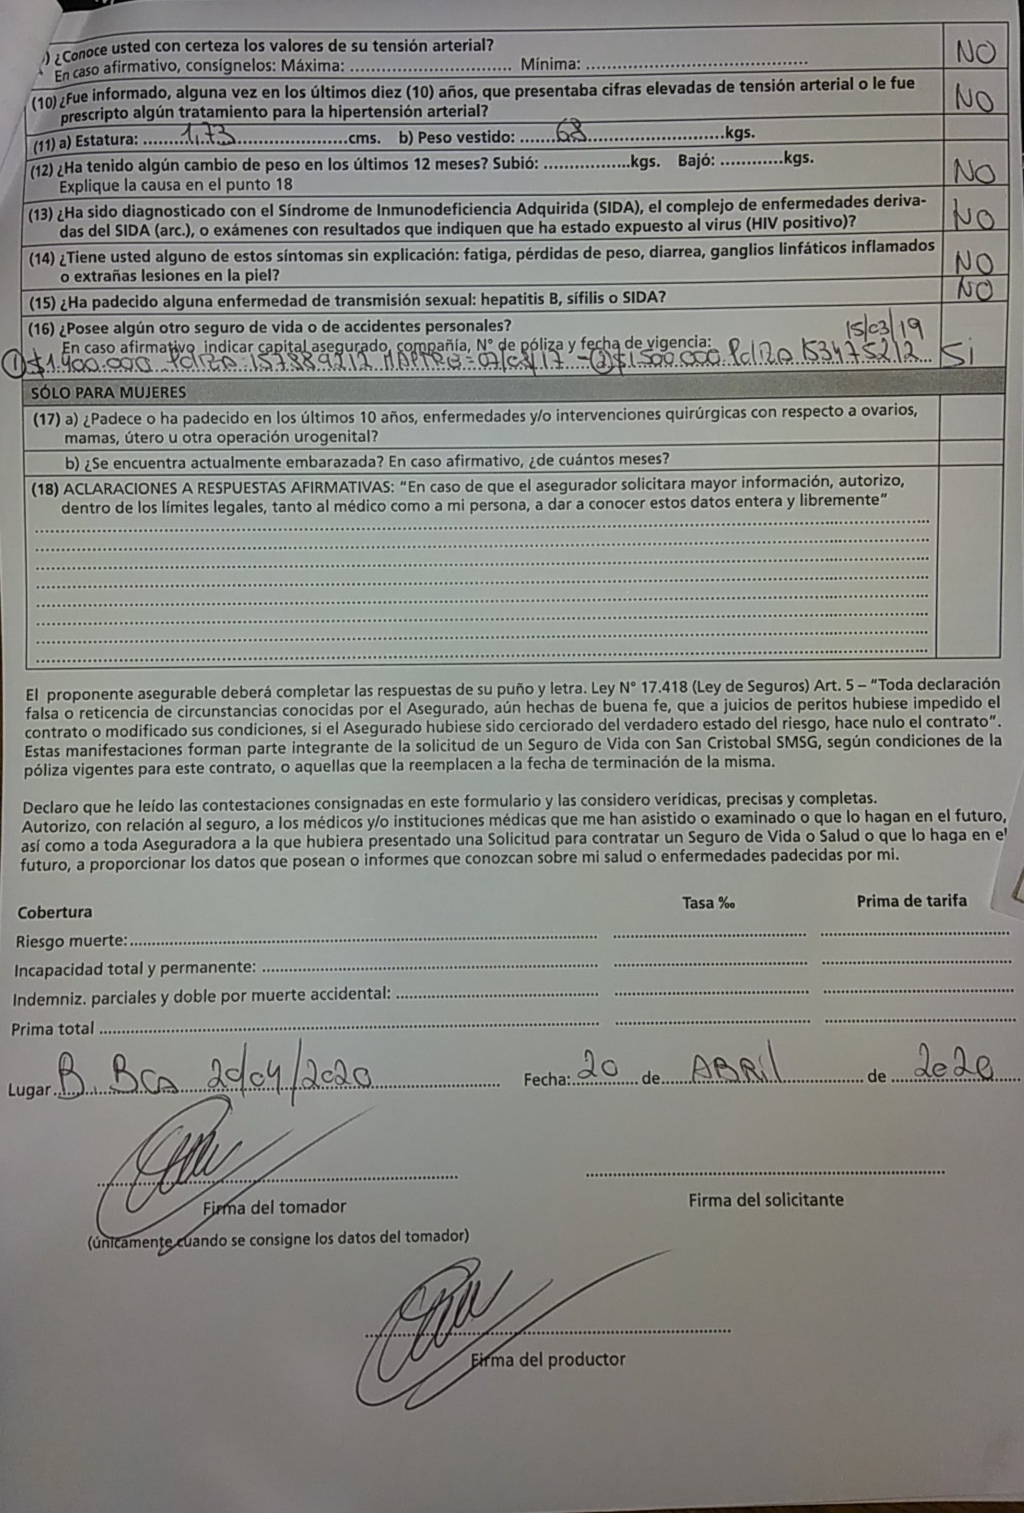 ) ¿Conoce usted con certeza los valores de su tensión arterial? NO
En caso afirmativo, consígnelos: Máxima: .................... Mínima: ....................
(10) ¿Fue informado, alguna vez en los últimos diez (10) años, que presentaba cifras elevadas de tensión arterial o le fue NO
prescripto algún tratamiento para la hipertensión arterial?
(11) a) Estatura: ........1,73........cms. b) Peso vestido: ........68........kgs.
(12) ¿Ha tenido algún cambio de peso en los últimos 12 meses? Subió: ................kgs. Bajó: ............kgs. NO
Explique la causa en el punto 18
(13) ¿Ha sido diagnosticado con el Síndrome de Inmunodeficiencia Adquirida (SIDA), el complejo de enfermedades deriva-
das del SIDA (arc.), o exámenes con resultados que indiquen que ha estado expuesto al virus (HIV positivo)? NO
(14) ¿Tiene usted alguno de estos síntomas sin explicación: fatiga, pérdidas de peso, diarrea, ganglios linfáticos inflamados NO
o extrañas lesiones en la piel?
(15) ¿Ha padecido alguna enfermedad de transmisión sexual: hepatitis B, sífilis o SIDA? NO
(16) ¿Posee algún otro seguro de vida o de accidentes personales? 15/03/19
En caso afirmativo indicar capital asegurado, compañía, N° de póliza y fecha de vigencia:
① $1.400.000 Poliza MAPFRE = ② $1.500.000 Poliza Si
SÓLO PARA MUJERES
(17) a) ¿Padece o ha padecido en los últimos 10 años, enfermedades y/o intervenciones quirúrgicas con respecto a ovarios,
mamas, útero u otra operación urogenital?
b) ¿Se encuentra actualmente embarazada? En caso afirmativo, ¿de cuántos meses?
(18) ACLARACIONES A RESPUESTAS AFIRMATIVAS: "En caso de que el asegurador solicitara mayor información, autorizo,
dentro de los límites legales, tanto al médico como a mi persona, a dar a conocer estos datos entera y libremente"
El proponente asegurable deberá completar las respuestas de su puño y letra. Ley N° 17.418 (Ley de Seguros) Art. 5 – "Toda declaración
falsa o reticencia de circunstancias conocidas por el Asegurado, aún hechas de buena fe, que a juicios de peritos hubiese impedido el
contrato o modificado sus condiciones, si el Asegurado hubiese sido cerciorado del verdadero estado del riesgo, hace nulo el contrato".
Estas manifestaciones forman parte integrante de la solicitud de un Seguro de Vida con San Cristobal SMSG, según condiciones de la
póliza vigentes para este contrato, o aquellas que la reemplacen a la fecha de terminación de la misma.
Declaro que he leído las contestaciones consignadas en este formulario y las considero verídicas, precisas y completas.
Autorizo, con relación al seguro, a los médicos y/o instituciones médicas que me han asistido o examinado o que lo hagan en el futuro,
así como a toda Aseguradora a la que hubiera presentado una Solicitud para contratar un Seguro de Vida o Salud o que lo haga en el
futuro, a proporcionar los datos que posean o informes que conozcan sobre mi salud o enfermedades padecidas por mi.
Cobertura Tasa ‰ Prima de tarifa
Riesgo muerte:
Incapacidad total y permanente:
Indemniz. parciales y doble por muerte accidental:
Prima total
Lugar B. BCA 20/04/2020 Fecha: 20 de ABRIL de 2020
Firma del tomador Firma del solicitante
(únicamente cuando se consigne los datos del tomador)
Firma del productor